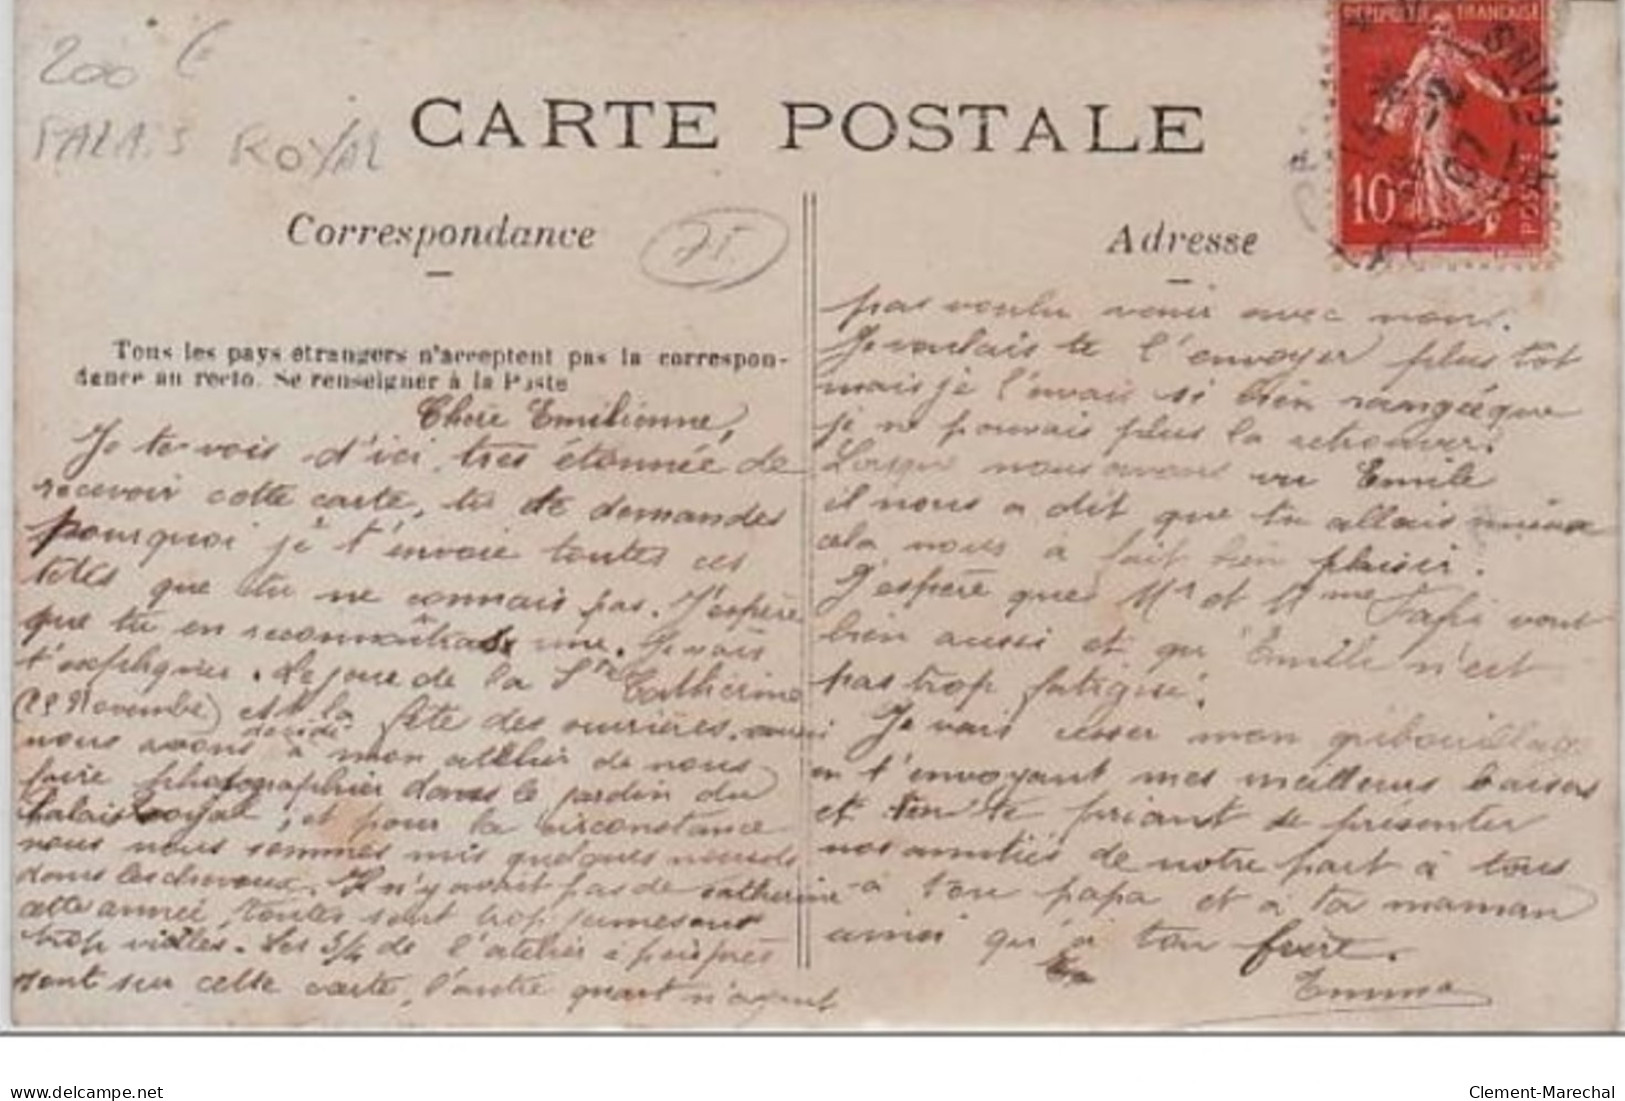 200 €
PALAIS ROYAL
CARTE POSTALE
Correspondance
75
Adresse
REPUBLIQUE FRANÇAISE
10
POSTES
Tous les pays étrangers n'acceptent pas la correspon-
dance au recto. Se renseigner à la Poste
Chère Emilienne,
Je te vois d'ici très étonnée de
recevoir cette carte, tu te demandes
pourquoi je t'envoie toutes ces
têtes que tu ne connais pas. J'espère
que tu en reconnaîtras une. Je vais
t'expliquer. Le jour de la Ste Catherine
(25 Novembre) est la fête des ouvrières. aussi
nous avons décidé à mon atelier de nous
faire photographier dans le jardin du
Palais Royal, et pour la circonstance
nous nous sommes mis quelques nœuds
dans les cheveux. Il n'y avait pas de catherine
cette année, toutes sont trop jeunes ou
trop vieilles. Les 3/4 de l'atelier à peu près
sont sur cette carte, l'autre quart n'ayant
pas voulu venir avec nous.
Je voulais te l'envoyer plus tôt
mais je l'avais si bien rangée que
je ne pouvais plus la retrouver.
Lorsque nous avons vu Emile
il nous a dit que tu allais mieux
cela nous a fait bien plaisir.
J'espère que Mr et Mme Papi vont
bien aussi et qu'Emile n'est
pas trop fatigué.
Je vais cesser mon gribouillage
en t'envoyant mes meilleurs baisers
et en te priant de présenter
nos amitiés de notre part à tous
à ton papa et à ta maman
ainsi qu'à ton frère.
Emma
delcampe.net
Clement-Marechal